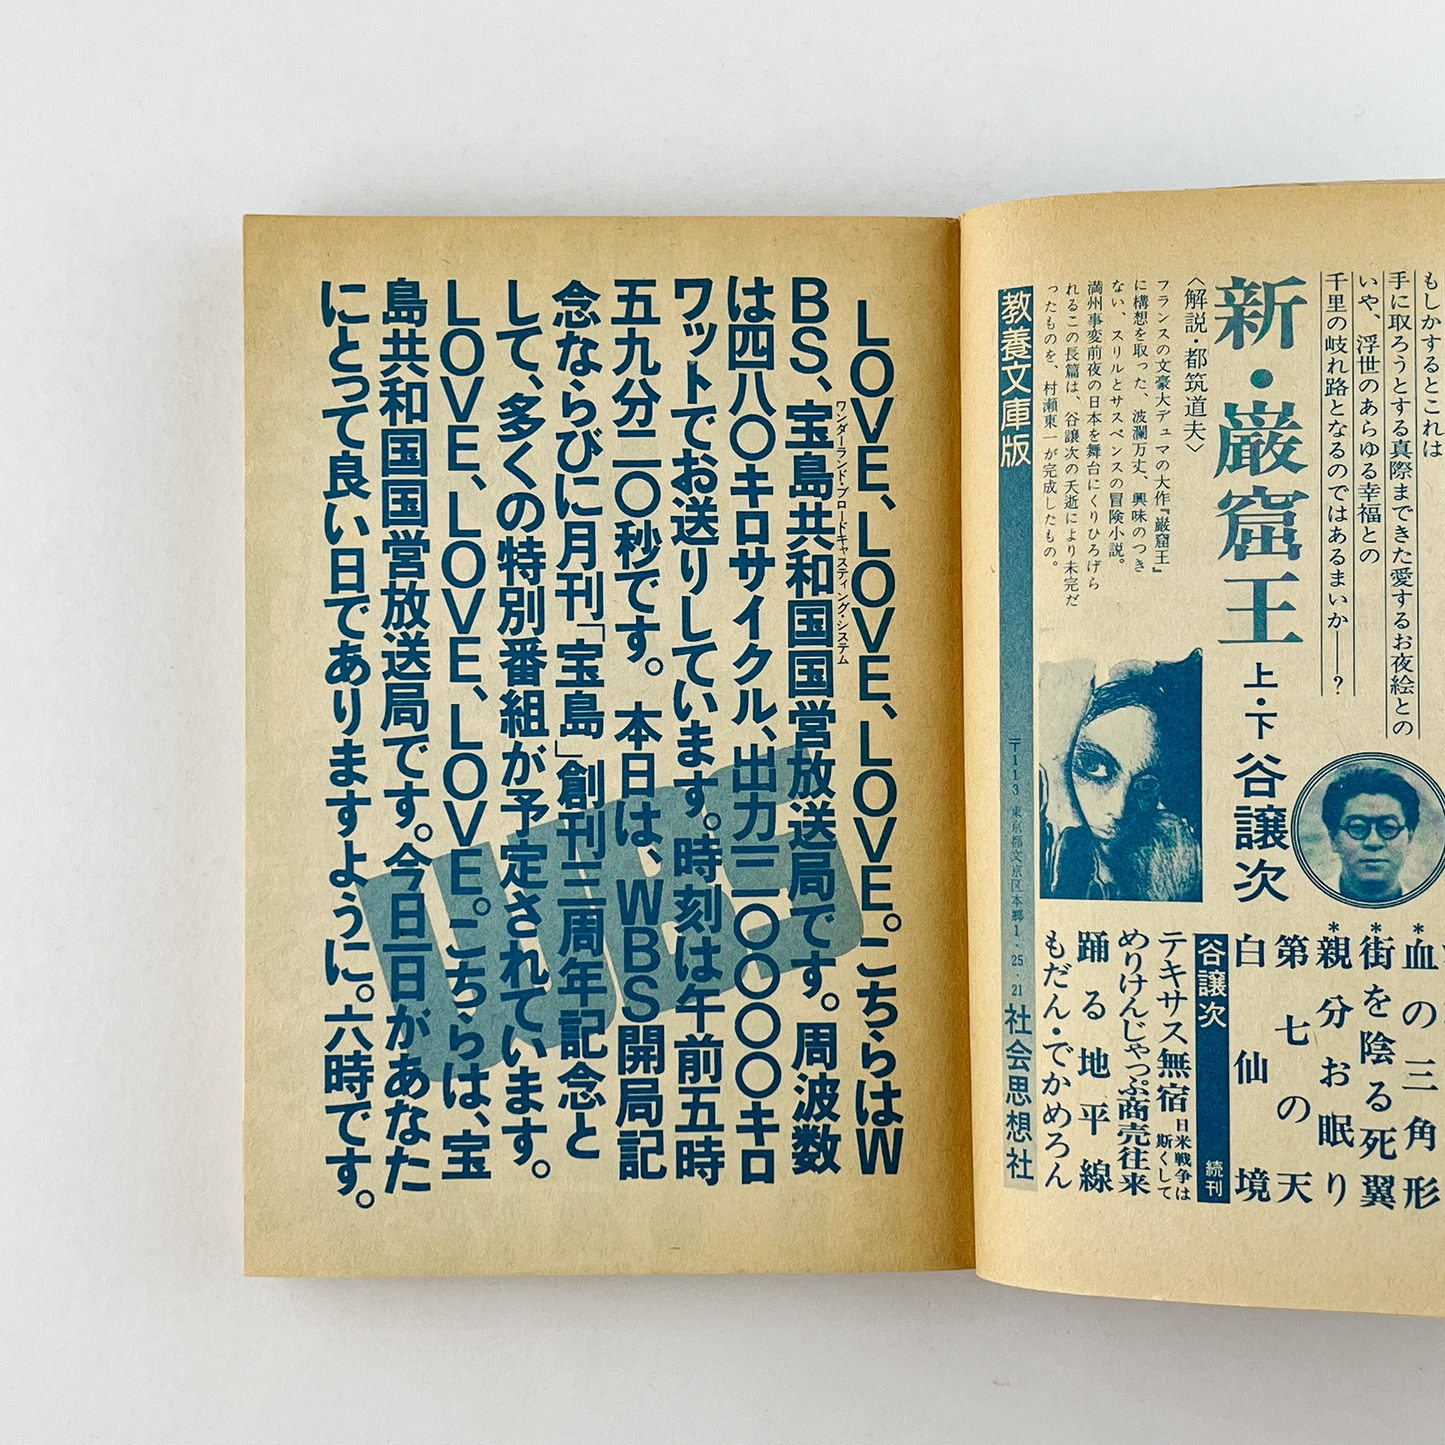 もしかするとこれは
手に取ろうとする真際まできた愛するお夜絵との
いや、浮世のあらゆる幸福との
千里の岐れ路となるのではあるまいか——?
新・巌窟王
上・下
谷譲次
〈解説・都筑道夫〉
フランスの文豪大デュマの大作『巌窟王』
に構想を取った、波瀾万丈、興味のつき
ない、スリルとサスペンスの冒険小説。
満州事変前夜の日本を舞台にくりひろげら
れるこの長篇は、谷譲次の夭逝により未完だ
ったものを、村瀬東一が完成したもの。
*血の三角形
*街を陰る死翼
*親分お眠り
第七の天
白仙境
谷譲次
続刊
テキサス無宿
日米戦争は
斯くして
めりけんじゃっぷ商売往来
踊る地平線
もだん・でかめろん
教養文庫版
〒113 東京都文京区本郷1・25・21
社会思想社
LOVE、LOVE、LOVE。こちらはW
BS、宝島共和国国営放送局です。周波数
ワンダーランド・ブロードキャスティング・システム
は四八〇キロサイクル、出力二一〇〇〇〇キロ
ワットでお送りしています。時刻は午前五時
五九分二〇秒です。本日は、WBS開局記
念ならびに月刊「宝島」創刊三周年記念と
して、多くの特別番組が予定されています。
LOVE、LOVE、LOVE。こちらは、宝
島共和国国営放送局です。今日一日があなた
にとって良い日でありますように。六時です。